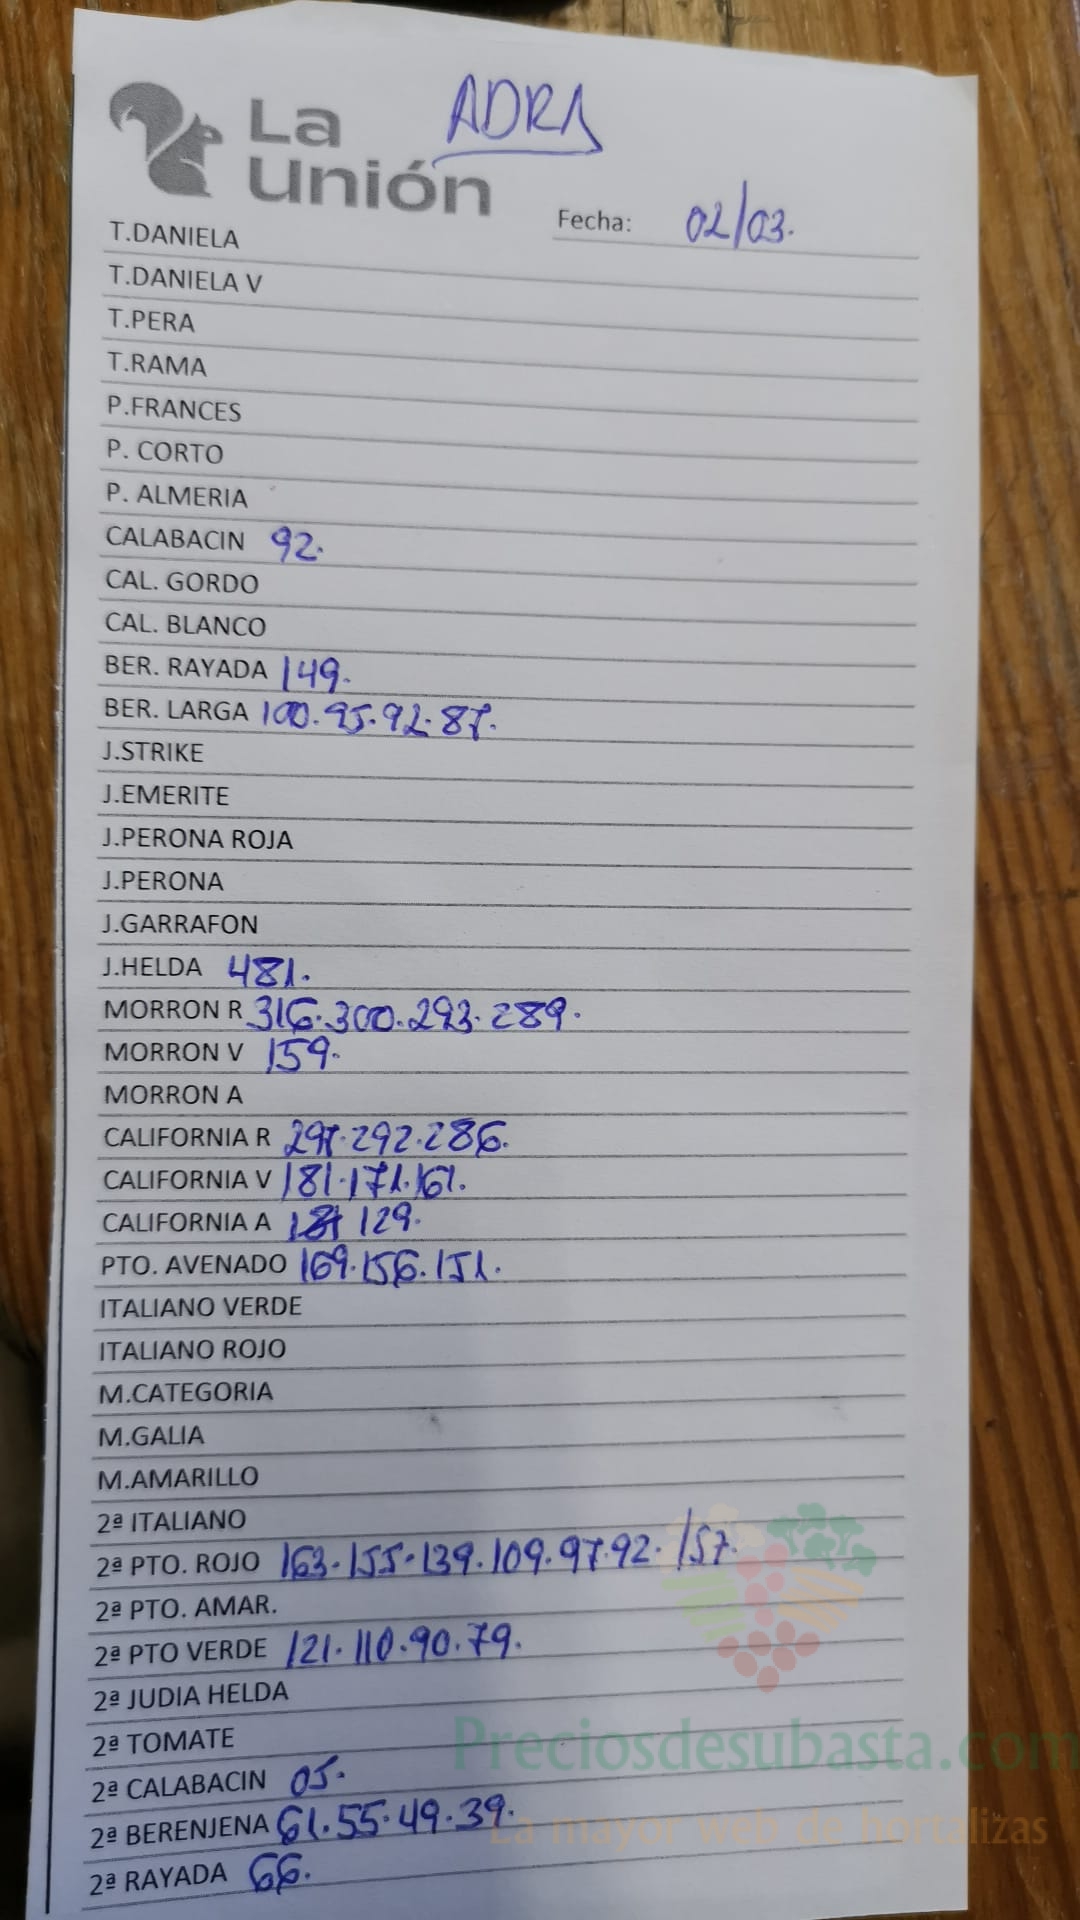 La
Unión
ADRA
Fecha: 02/03.
T.DANIELA
T.DANIELA V
T.PERA
T.RAMA
P.FRANCES
P. CORTO
P. ALMERIA
CALABACIN 92.
CAL. GORDO
CAL. BLANCO
BER. RAYADA 149.
BER. LARGA 100.95.92.87.
J.STRIKE
J.EMERITE
J.PERONA ROJA
J.PERONA
J.GARRAFON
J.HELDA 481.
MORRON R 316.300.293.289.
MORRON V 159.
MORRON A
CALIFORNIA R 297.292.286.
CALIFORNIA V 181.171.161.
CALIFORNIA A 129.
PTO. AVENADO 169.156.151.
ITALIANO VERDE
ITALIANO ROJO
M.CATEGORIA
M.GALIA
M.AMARILLO
2ª ITALIANO
2ª PTO. ROJO 163.155.139.109.97.92. /57.
2ª PTO. AMAR.
2ª PTO VERDE 121.110.90.79.
2ª JUDIA HELDA
2ª TOMATE
2ª CALABACIN 05.
2ª BERENJENA 61.55.49.39.
2ª RAYADA 66.
Preciosdesubasta.com
La mayor web de hortalizas